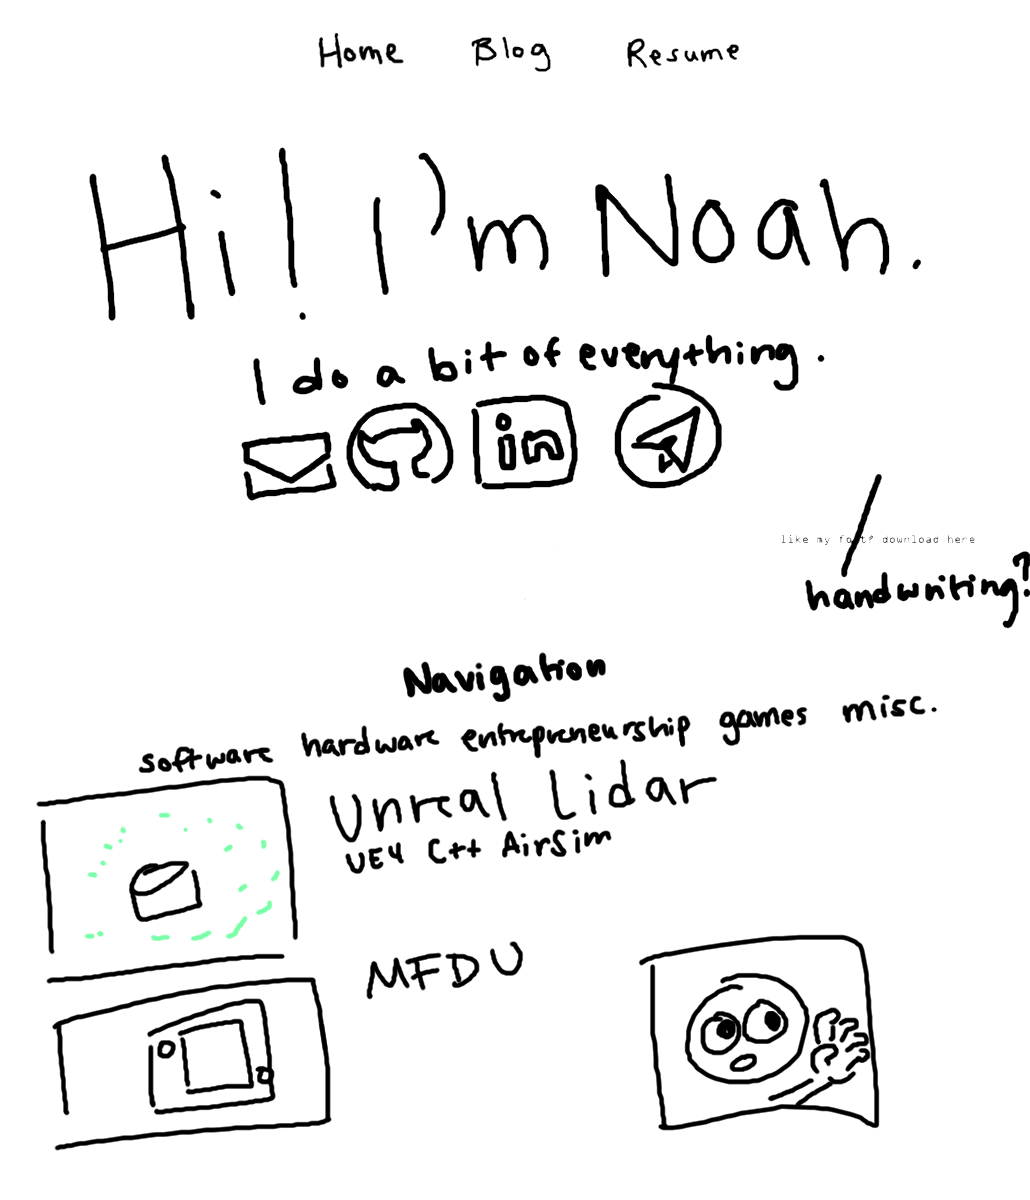 Home Blog Resume
Hi! I'm Noah.
I do a bit of everything.
in
like my font? download here
handwriting?
Navigation
software hardware entrepreneurship games misc.
Unreal Lidar
UE4 C++ AirSim
MFDU